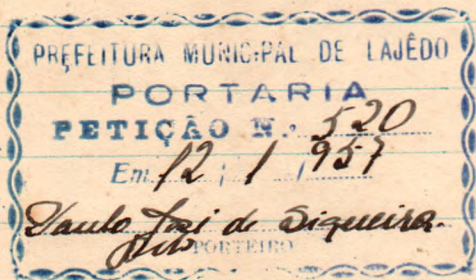 PREFEITURA MUNICIPAL DE LAJÊDO
PORTARIA
PETIÇÃO N.º 520
Em 12 / 1 / 957
Paulo José de Siqueira
PORTEIRO